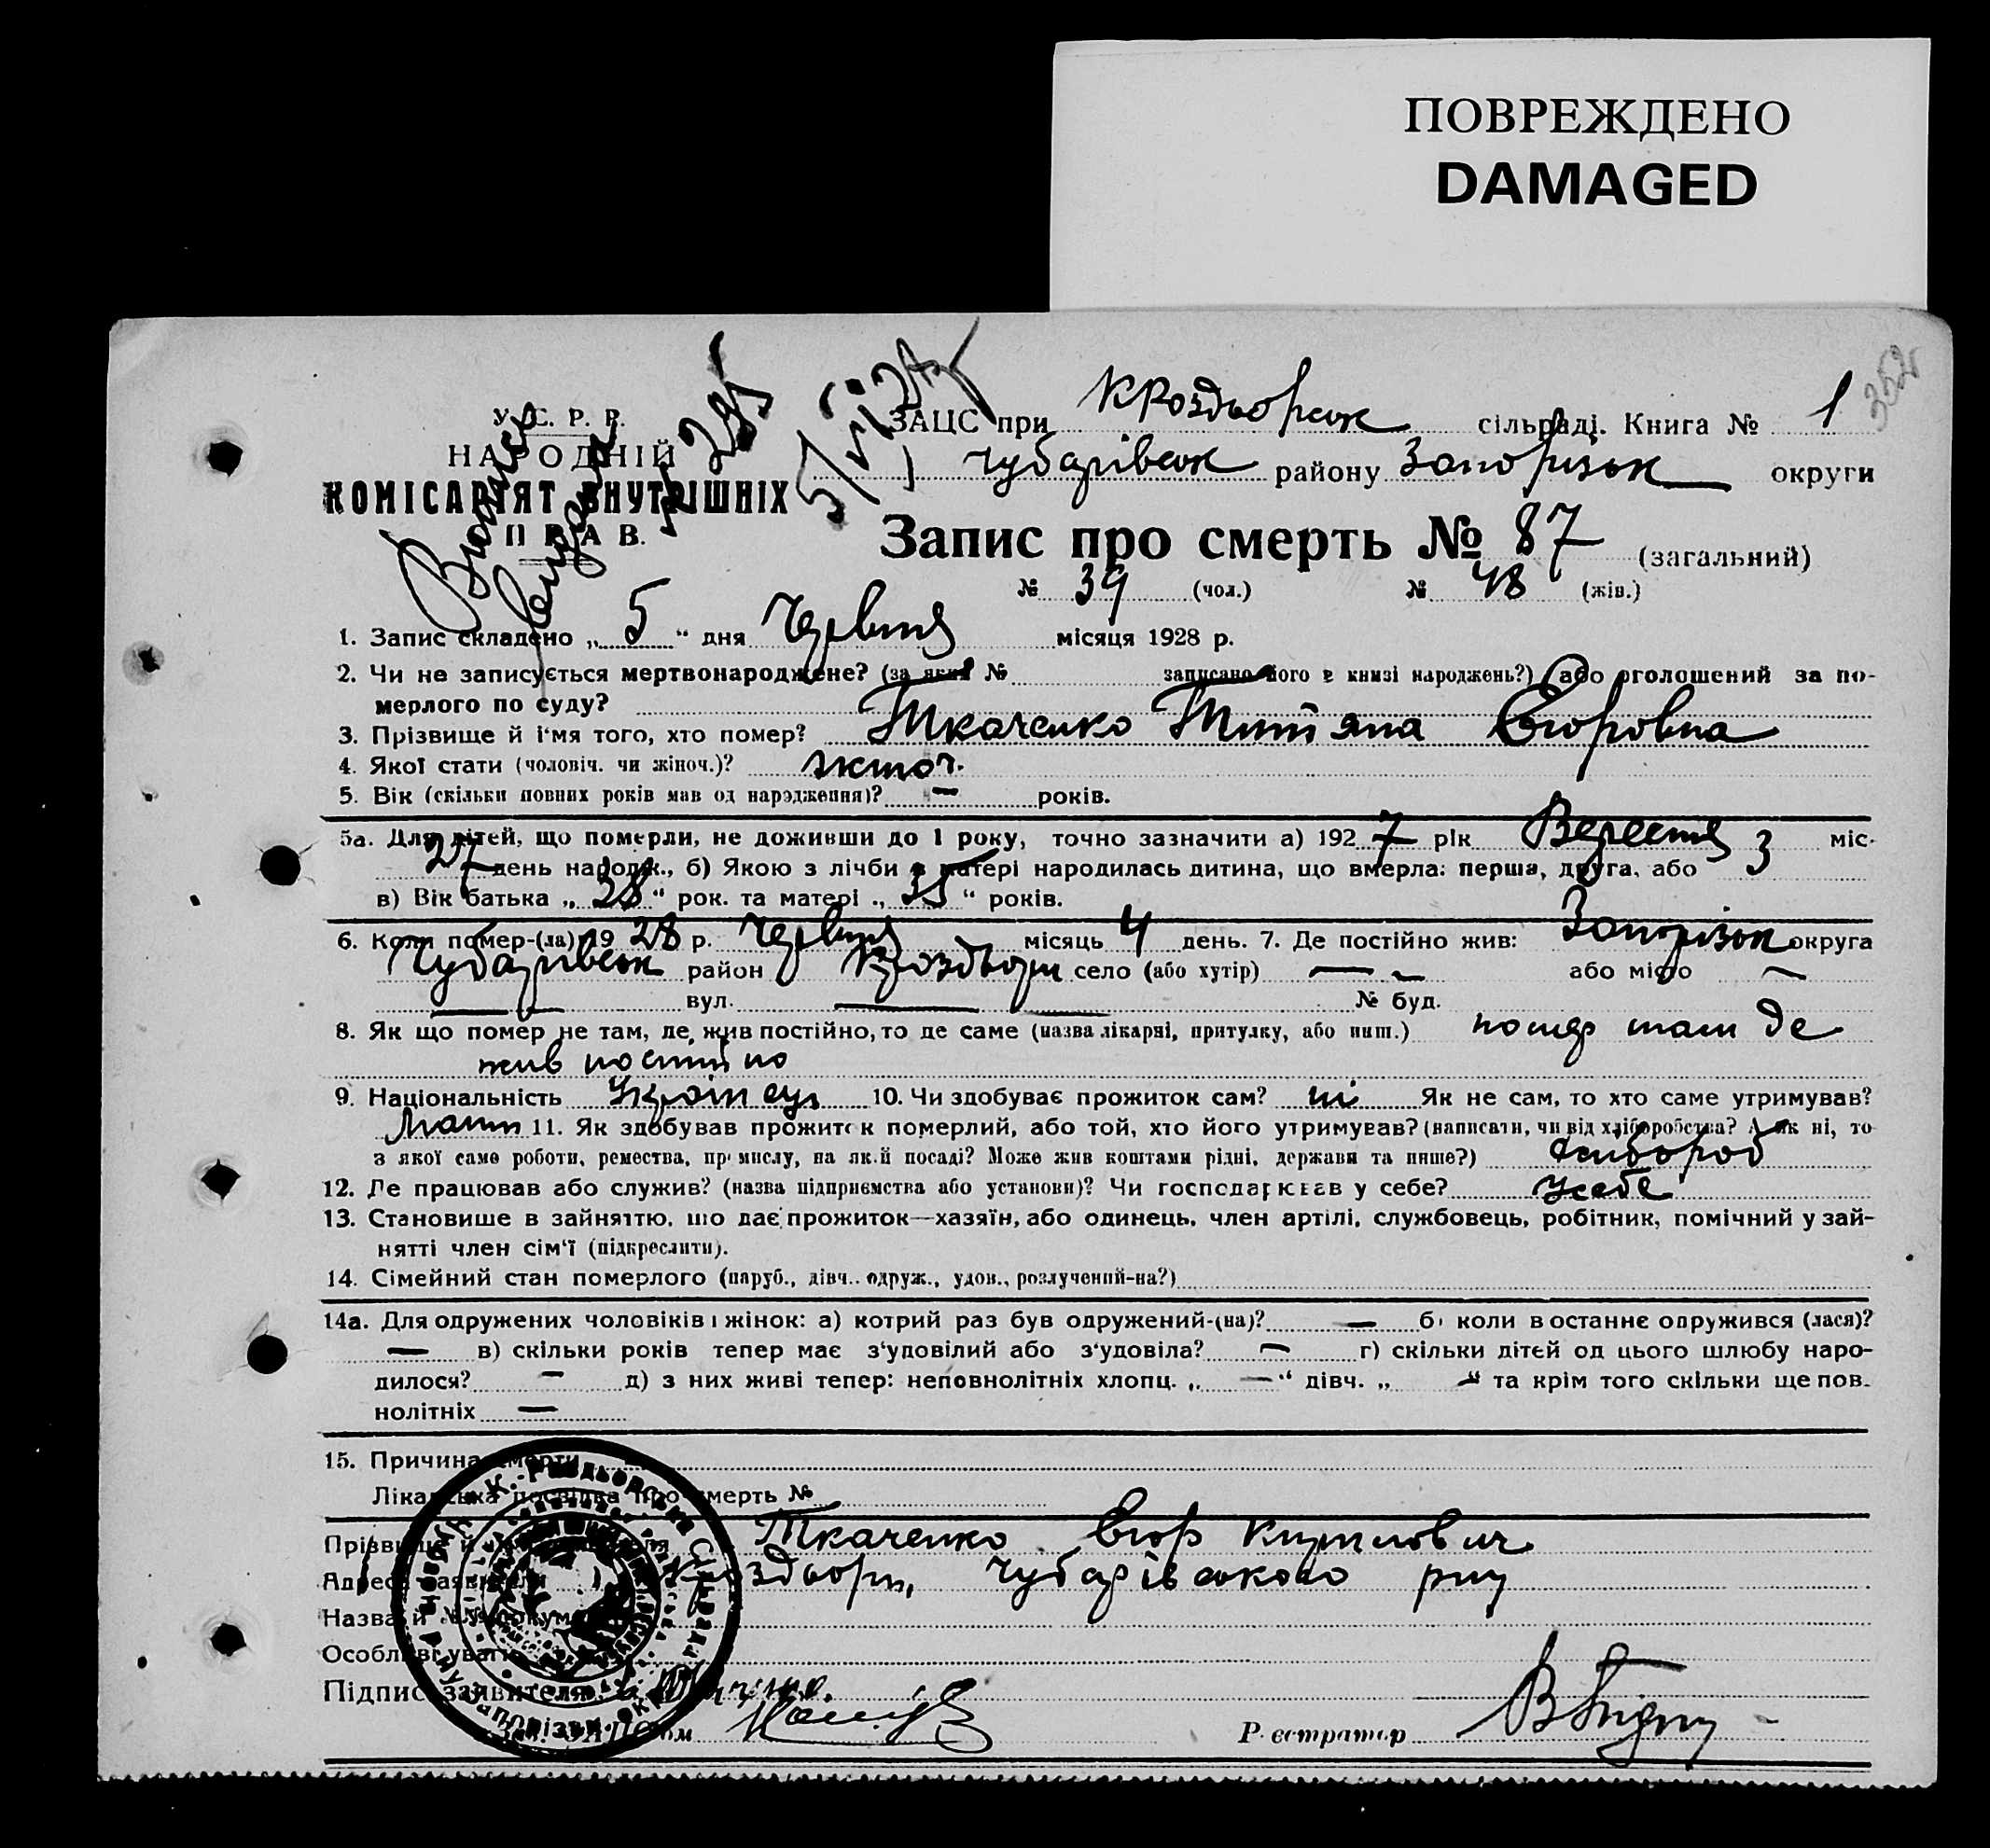 ПОВРЕЖДЕНО
DAMAGED
352
У. С. Р. Р.
НАРОДНІЙ
КОМІСАРІЯТ ВНУТРІШНІХ
ПРАВ.
ЗАЦС при КРоздорськ сільраді. Книга № 1
Чубарівськ району Запорізьк округи
Запис про смерть № 87 (загальний)
№ 39 (чол.) № 48 (жін.)
1. Запис складено „ 5 “ дня Червня місяця 1928 р.
2. Чи не записується мертвонароджене? (за яким № записано його в книзі народжень?) або оголошений за по-
мерлого по суду?
3. Прізвище й і'мя того, хто помер? Ткаченко Титяна Єгоровна
4. Якої стати (чоловіч. чи жіноч.)? жіноч.
5. Вік (скільки повних років мав од народження)? — років.
5а. Для дітей, що померли, не доживши до 1 року, точно зазначити а) 192 7 рік Вересня міс.
27 день народж., б) Якою з лічби в матері народилась дитина, що вмерла: перша, друга, або 3
в) Вік батька „ 28 “ рок. та матері „ 35 “ років.
6. Коли помер-(ла) 19 28 р. Червня місяць 4 день. 7. Де постійно жив: Запорізьк округа
Чубарівськ район село (або хутір) — або місто —
— вул. — № буд.
8. Як що помер не там, де жив постійно, то де саме (назва лікарні, притулку, або инш.) помер там де
жив постійно
9. Національність 10. Чи здобуває прожиток сам? ні Як не сам, то хто саме утримував?
Мати 11. Як здобував прожиток померлий, або той, хто його утримував? (написати, чи від хліборобства? А як ні, то
з якої саме роботи, ремества, промислу, на якій посаді? Може жив коштами рідні, держави та инше?) хлібороб
12. Де працював або служив? (назва підприємства або установи)? Чи господарював у себе? у себе
13. Становище в зайняттю, що дає прожиток—хазяїн, або одинець, член артілі, службовець, робітник, помічний у зай-
нятті член сім'ї (підкреслити).
14. Сімейний стан померлого (паруб., дівч., одруж., удов., розлучений-на?)
14а. Для одружених чоловіків і жінок: а) котрий раз був одружений-(на)? — б) коли в останнє одружився (лася)?
— в) скільки років тепер має з'удовілий або з'удовіла? — г) скільки дітей од цього шлюбу наро-
дилося? — д) з них живі тепер: неповнолітніх хлопц. „ — “ дівч. „ — “ та крім того скільки ще пов-
нолітніх —
15. Причина смерти
Лікарська посвідка про смерть №
Прізвище й Ткаченко Єгор Кирилович
Адреса заявителя Чубарівського р-ну
Назва й № докум
Особливі уваги
Підпис заявителя
Зав. ЗАЦС'ом
Реєстратор